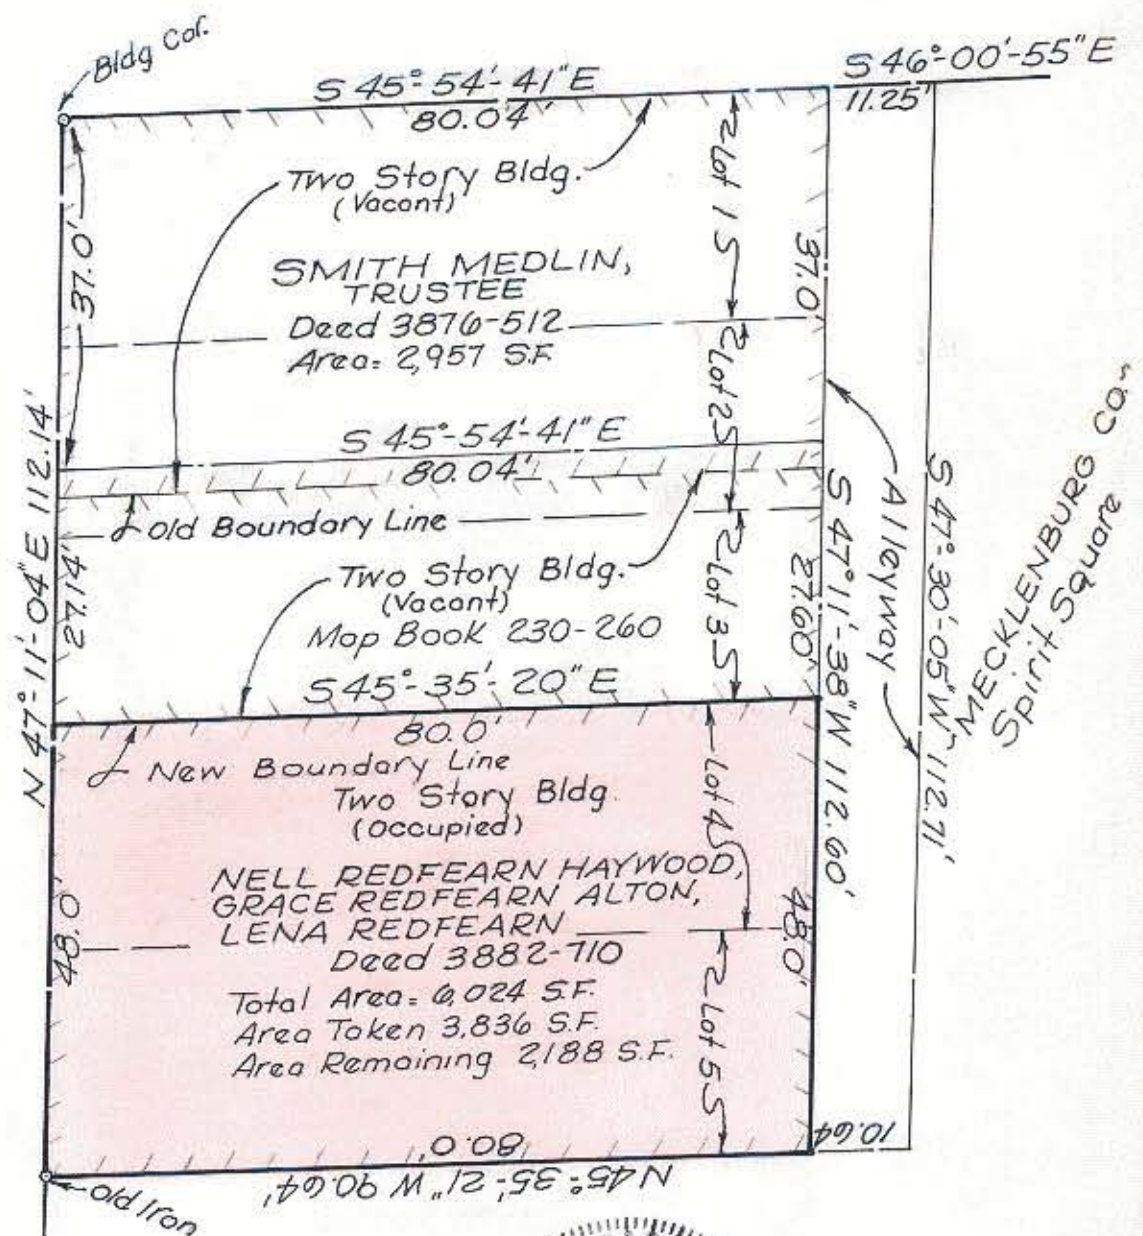 Bldg Cor.
S 46°-00'-55" E
11.25'
S 45°-54'-41" E
80.04'
Two Story Bldg.
(Vacant)
Lot 1
37.0'
37.0'
SMITH MEDLIN,
TRUSTEE
Deed 3876-512
Area= 2,957 S.F.
Lot 2
S 45°-54'-41" E
80.04'
Old Boundary Line
Two Story Bldg.
(Vacant)
Map Book 230-260
Lot 3
27.14'
27.60'
N 47°-11'-04" E 112.14'
S 47°11'-38" W 112.60'
Alleyway
S 47°-30'-05" W 112.71'
MECKLENBURG CO.
Spirit Square
S 45°-35'-20" E
80.0'
New Boundary Line
Two Story Bldg.
(Occupied)
Lot 4
NELL REDFEARN HAYWOOD,
GRACE REDFEARN ALTON,
LENA REDFEARN
Deed 3882-710
48.0'
48.0'
Total Area= 6,024 S.F.
Area Taken 3,836 S.F.
Area Remaining 2,188 S.F.
Lot 5
80.0'
10.64
N 45°-35'-21" W 90.64'
Old Iron